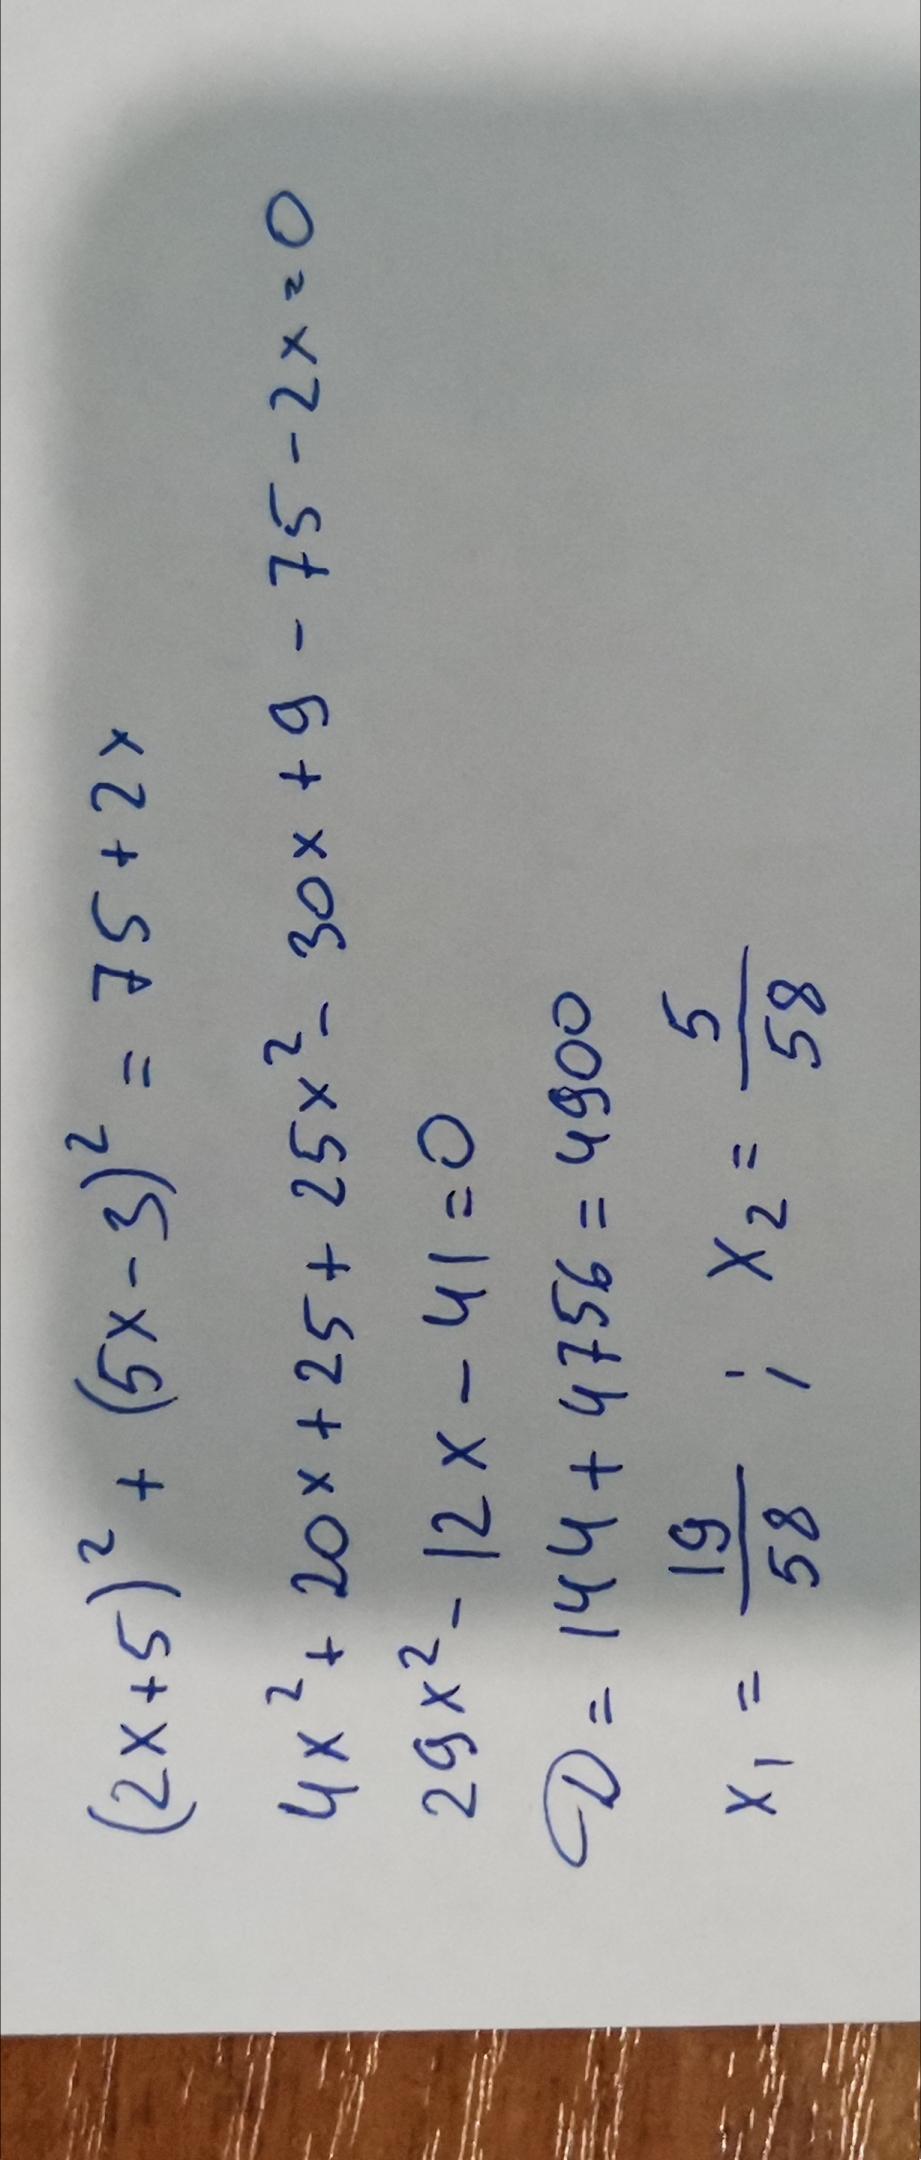 (2x+5)² + (5x-3)² = 75+2x
4x²+20x+25+25x²-30x+9-75-2x=0
29x²-12x-41=0
D=144+4756=4900
x₁ = 19/58 ; x₂ = 5/58